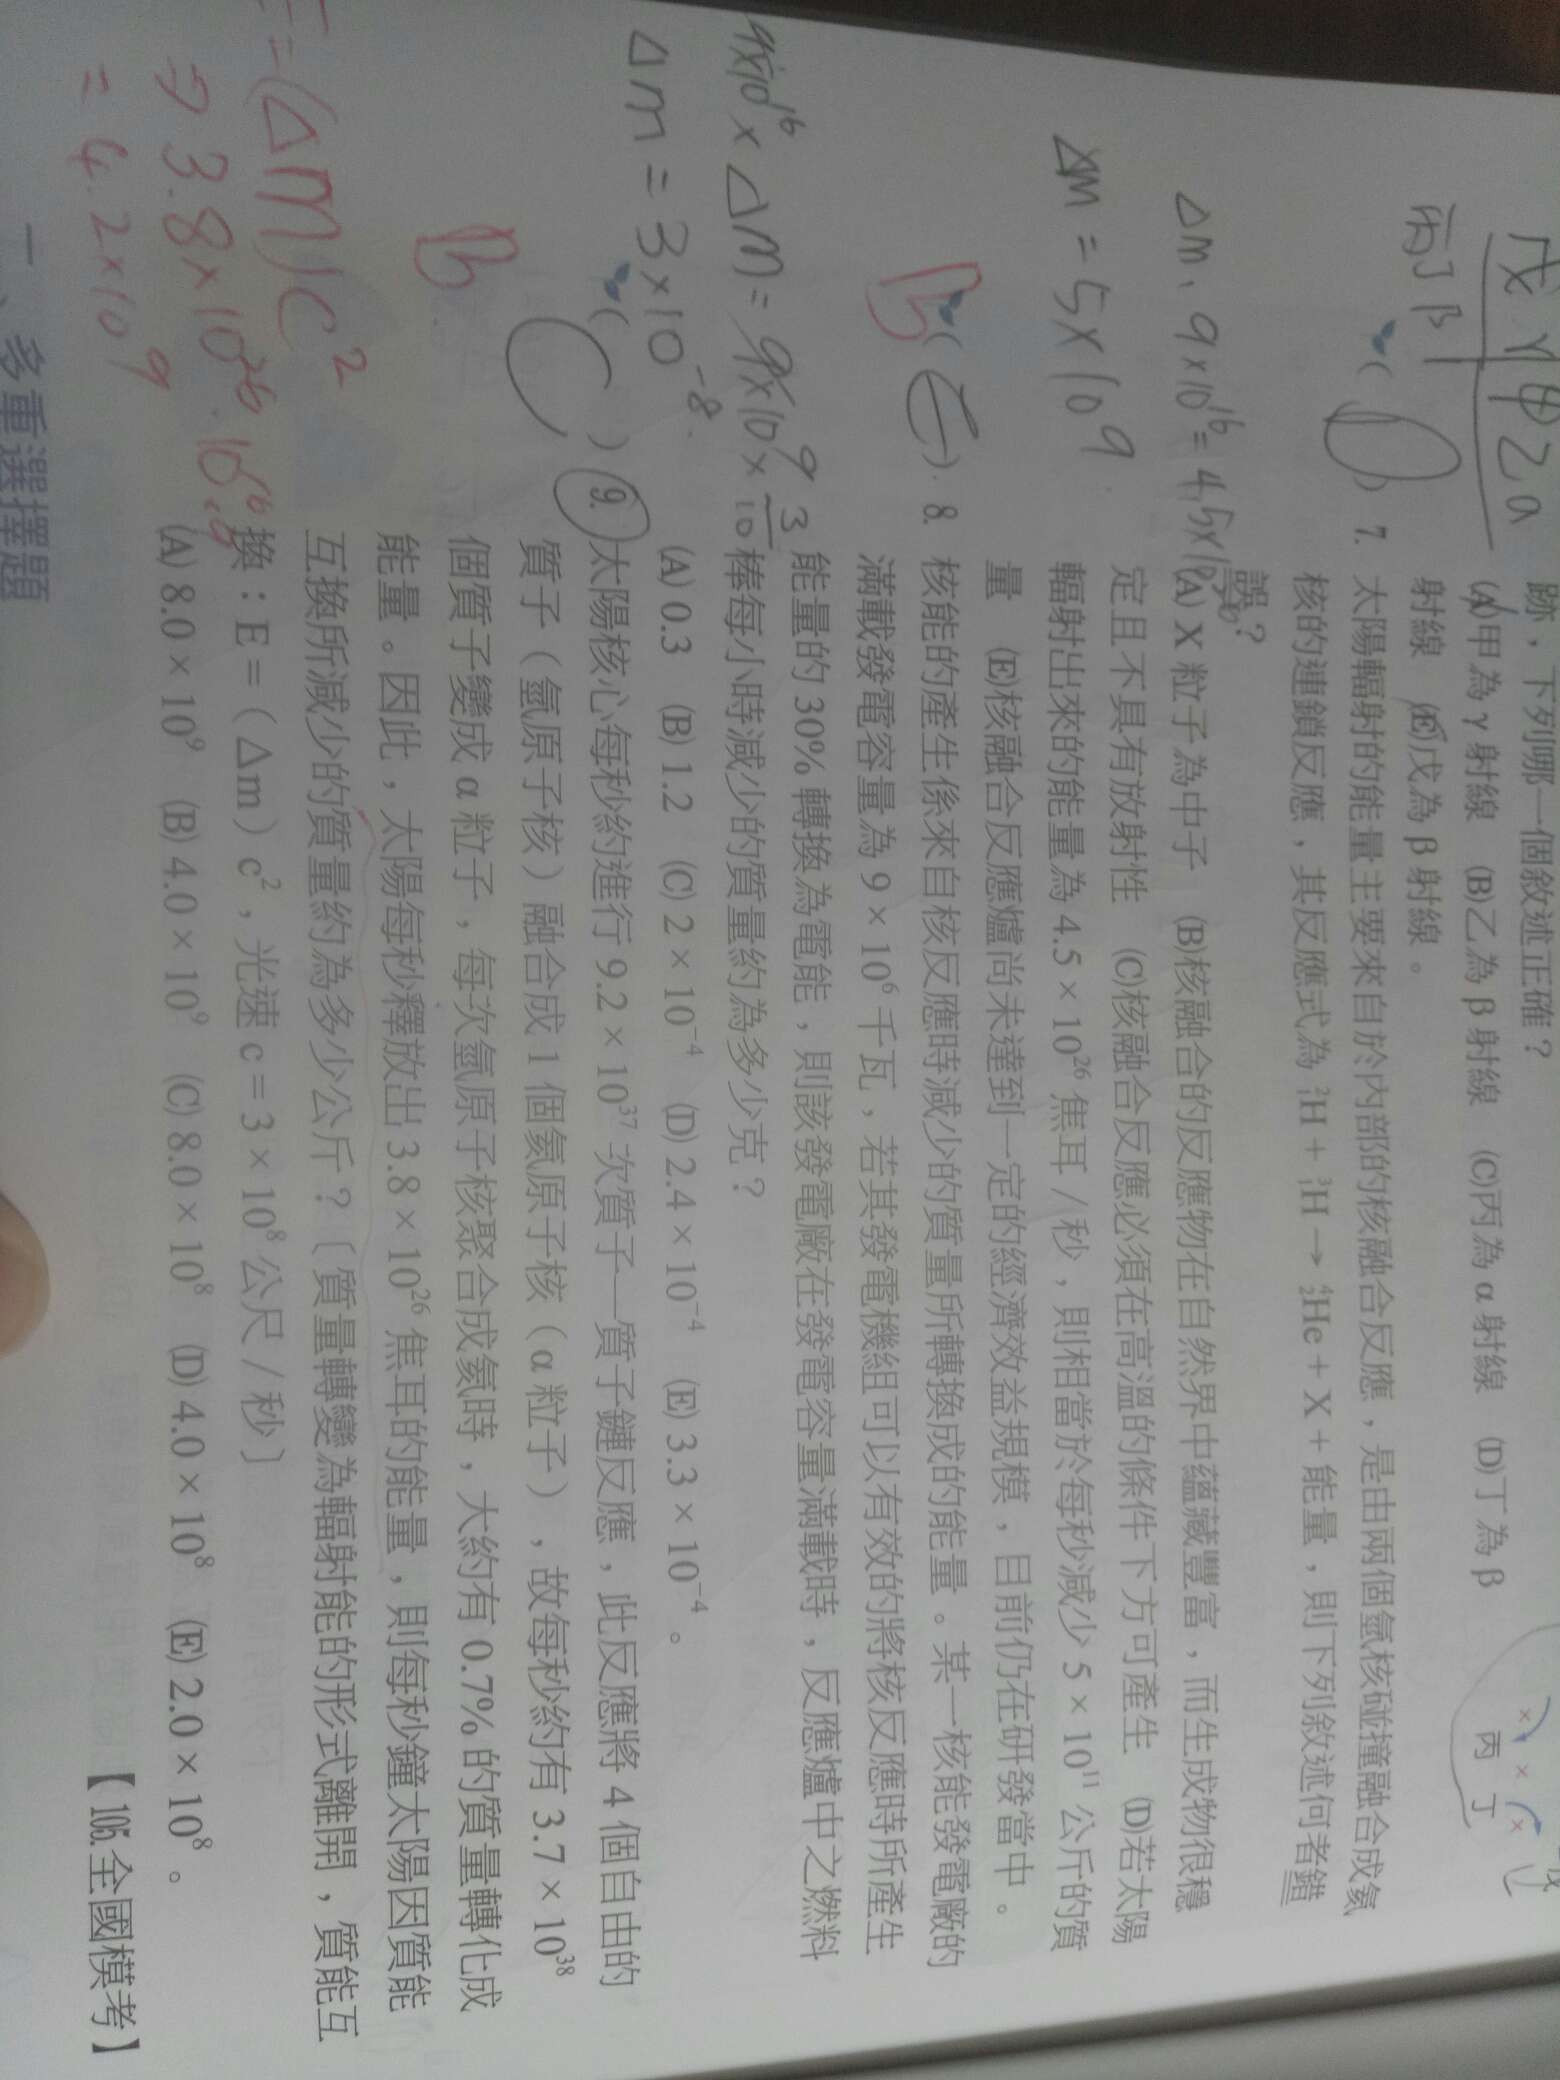 戊γ 甲乙α
丙丁β
丙 丁
跡，下列哪一個敘述正確？
(A)甲為 γ 射線 (B)乙為 β 射線 (C)丙為 α 射線 (D)丁為 β
射線 (E)戊為 β 射線。
( D ) 7. 太陽輻射的能量主要來自於內部的核融合反應，是由兩個氫核碰撞融合成氦
核的連鎖反應，其反應式為 ²₁H + ³₁H → ⁴₂He + X + 能量，則下列敘述何者錯
誤？
(A) X 粒子為中子 (B)核融合的反應物在自然界中蘊藏豐富，而生成物很穩
定且不具有放射性 (C)核融合反應必須在高溫的條件下方可產生 (D)若太陽
輻射出來的能量為 4.5 × 10²⁶ 焦耳／秒，則相當於每秒減少 5 × 10¹¹ 公斤的質
量 (E)核融合反應爐尚未達到一定的經濟效益規模，目前仍在研發當中。
Δm · 9×10¹⁶ = 4.5×10²⁶
Δm = 5×10⁹
B
8. 核能的產生係來自核反應時減少的質量所轉換成的能量。某一核能發電廠的
滿載發電容量為 9 × 10⁶ 千瓦，若其發電機組可以有效的將核反應時所產生
能量的 30% 轉換為電能，則該發電廠在發電容量滿載時，反應爐中之燃料
棒每小時減少的質量約為多少克？
(A) 0.3 (B) 1.2 (C) 2 × 10⁻⁴ (D) 2.4 × 10⁻⁴ (E) 3.3 × 10⁻⁴。
9×10¹⁶ × Δm = 9×10⁹ × 3/10
Δm = 3×10⁻⁸
B
( C ) 9. 太陽核心每秒約進行 9.2 × 10³⁷ 次質子—質子鏈反應，此反應將 4 個自由的
質子（氫原子核）融合成 1 個氦原子核（α 粒子），故每秒約有 3.7 × 10³⁸
個質子變成 α 粒子，每次氫原子核聚合成氦時，大約有 0.7% 的質量轉化成
能量。因此，太陽每秒釋放出 3.8 × 10²⁶ 焦耳的能量，則每秒鐘太陽因質能
互換所減少的質量約為多少公斤？〔質量轉變為輻射能的形式離開，質能互
換：E =（Δm）c²，光速 c = 3 × 10⁸ 公尺／秒〕
(A) 8.0 × 10⁹ (B) 4.0 × 10⁹ (C) 8.0 × 10⁸ (D) 4.0 × 10⁸ (E) 2.0 × 10⁸。
【105.全國模考】
= (Δm)c²
⇒ 3.8×10²⁶
= 4.2×10⁹
一、多重選擇題